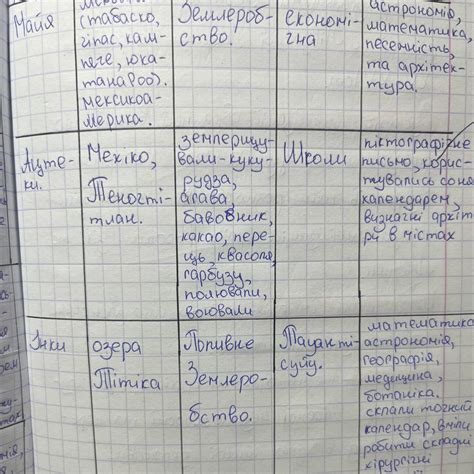 Майя
стабаско,
гіпас, кам-
пече, юка-
тана(Роо).
мексикоа-
мерика.
Землероб-
ство.
економі-
чна
астрономія,
математика,
песемність,
та архітек-
тура.
Ацте-
ки.
Мехіко,
Теночті-
тлан.
земперицу-
вали-куку-
рудза,
агава,
бавовник,
какао, пере-
ць, квасоля,
гарбузу,
полювали,
воювали
Школи
піктографічне
письмо, корис-
тувались соня
календарем,
визначні архіт
рч в містах
Інки
озера
Тітіка
Поливне
Землеро-
бство.
Тауанті-
суйу.
математика
астрономія,
географія,
медицина,
ботаніка.
склали точний
календар, вміли
робити складні
хірургічні